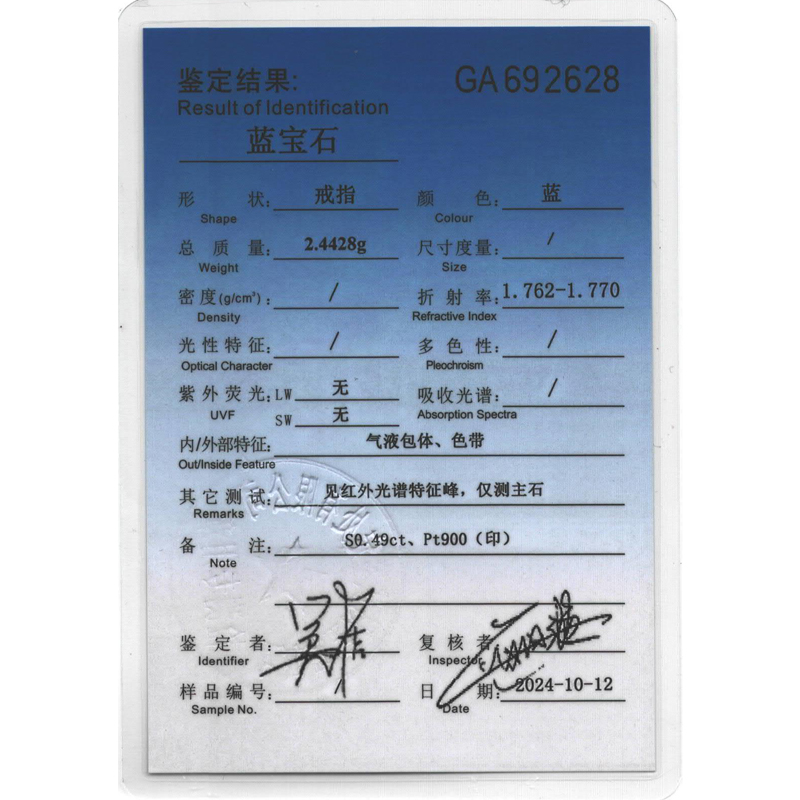 鉴定结果: GA692628
Result of Identification
蓝宝石
形 状: 戒指 颜 色: 蓝
Shape Colour
总 质 量: 2.4428g 尺寸度量: /
Weight Size
密度(g/cm³): / 折 射 率: 1.762-1.770
Density Refractive Index
光性特征: / 多 色 性: /
Optical Character Pleochroism
紫外荧光: LW 无 吸收光谱: /
UVF SW 无 Absorption Spectra
内/外部特征: 气液包体、色带
Out/Inside Feature
其它测试: 见红外光谱特征峰，仅测主石
Remarks
备 注: S0.49ct、Pt900（印）
Note
鉴 定 者: 复 核 者
Identifier Inspector
样品编号: / 日 期: 2024-10-12
Sample No. Date